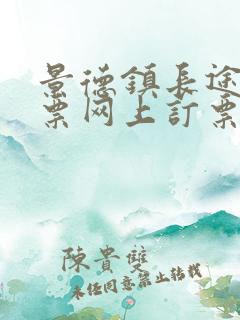 景德鎮長途
票网上訂票
陳貴雙
未经同意禁止转载